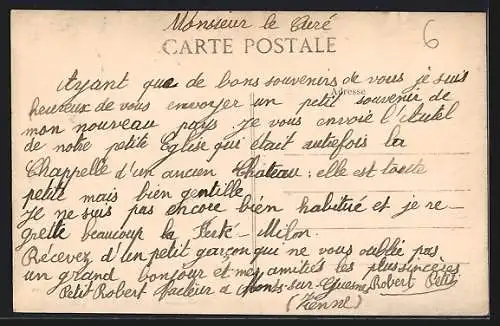 Monsieur le Curé
CARTE POSTALE
6
Ayant que de bons souvenirs de vous je suis
Adresse
heureux de vous envoyer un petit souvenir de
mon nouveau pays Je vous envoie l'Autel
de notre petite Eglise qui était autrefois la
Chappelle d'un ancien Château : elle est toute
petite mais bien gentille
Je ne suis pas encore bien habitué et je re-
grette beaucoup la Ferté-Milon.
Récevez d'un petit garçon qui ne vous oublie pas
un grand bonjour et mes amitiés les plus sincères
Petit Robert facteur à Monts-sur-Guesnes Robert Petit
(Vienne)